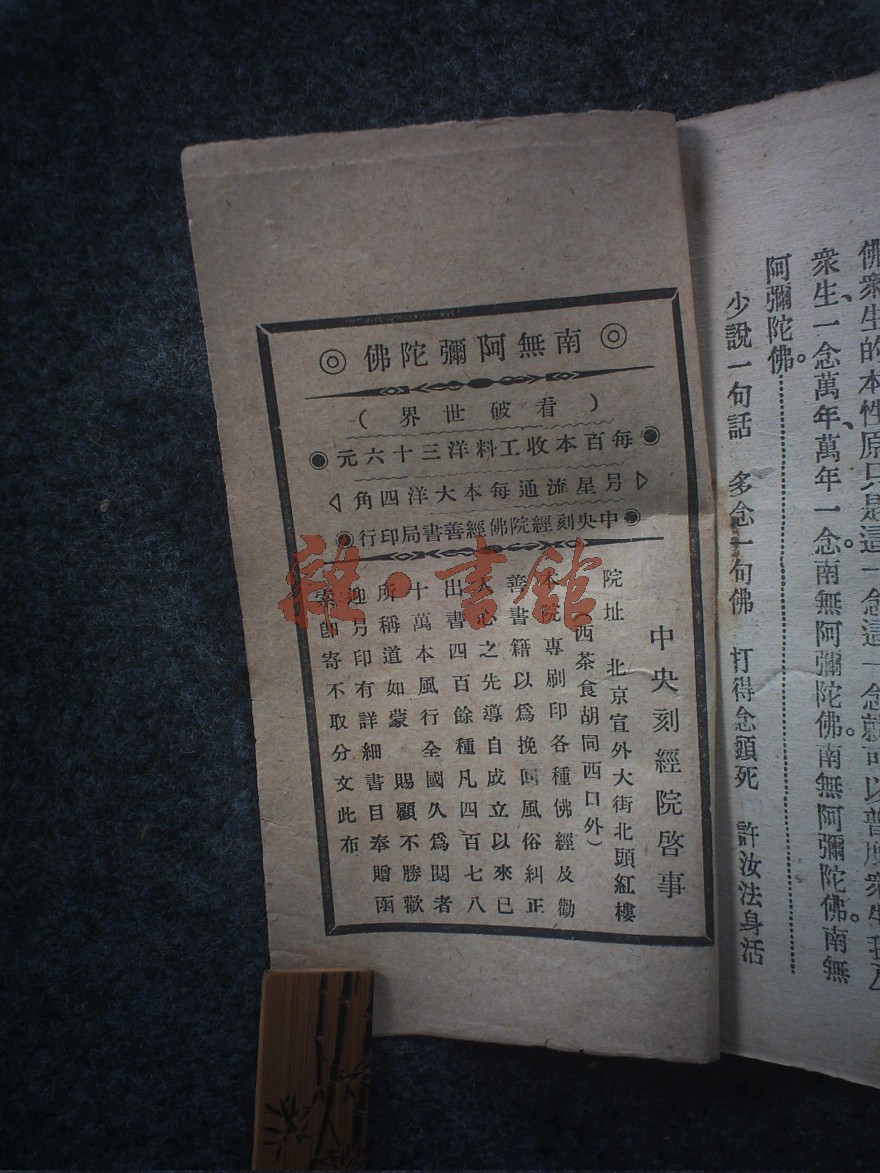 佛、衆生的本性原只是這一念這一念就可以普度衆生我及
衆生、一念萬年、萬年一念。南無阿彌陀佛。南無阿彌陀佛。南無
阿彌陀佛。
少說一句話 多念一句佛 打得念頭死 許汝法身活
◎南無阿彌陀佛◎
(看破世界)
每百本收工料洋三十六元
另星流通每本大洋四角
中央刻經院佛經善書局印行
中央刻經院啓事
院址 北京宣外大街北頭紅樓
(西茶食胡同西口外)
本院專刷印各種佛經及勸
善書籍以爲挽回風俗糾正
人心之先導自成立以來已
出書四百餘種凡四百七八
十萬本風行全國久爲閱者
所稱道如蒙 賜顧不勝歡
迎另印有詳細書目奉贈函
索卽寄不取分文此布
雜·書館